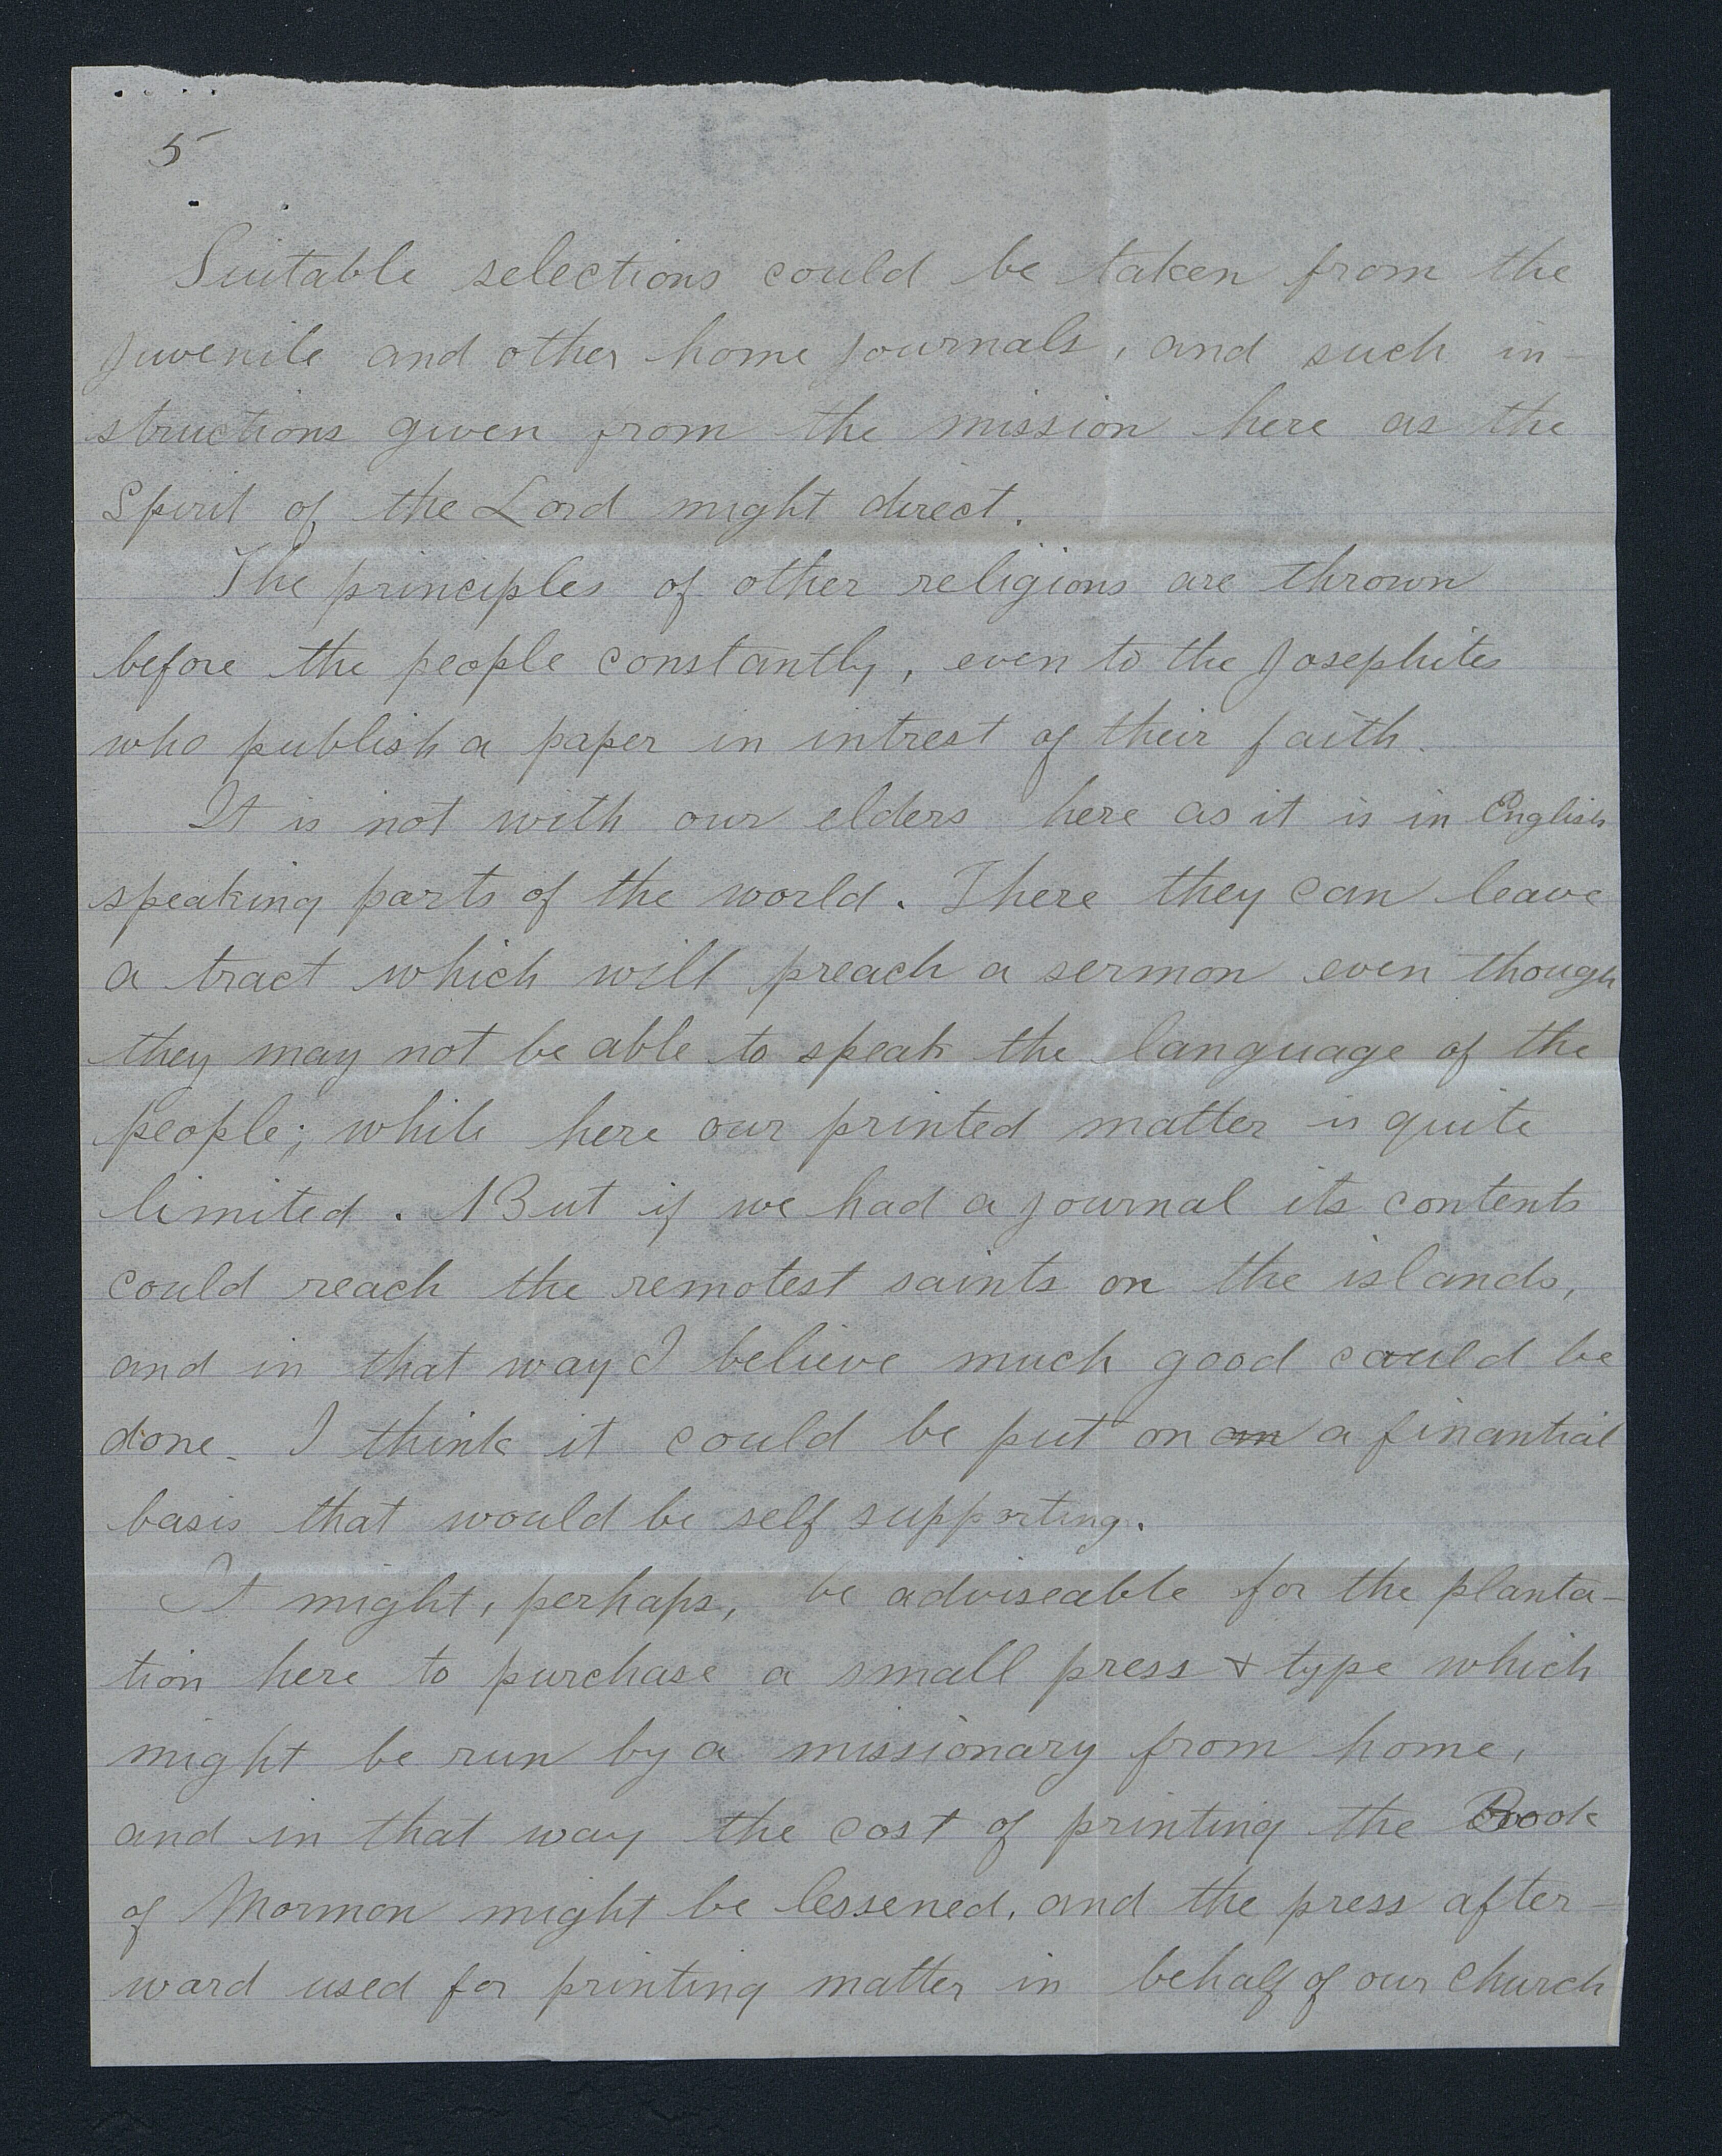 5
Suitable selections could be taken from the
Juvenile and other home journals, and such in-
structions given from the mission here as the
Spirit of the Lord might direct.
The principles of other religions are thrown
before the people constantly, even to the Josephites
who publish a paper in intrest of their faith.
It is not with our elders here as it is in English
speaking parts of the world. There they can leave
a tract which will preach a sermon even though
they may not be able to speak the language of the
people; while here our printed matter is quite
limited. But if we had a journal its contents
could reach the remotest saints on the islands,
and in that way I believe much good could be
done. I think it could be put on an a finantial
basis that would be self supporting.
It might, perhaps, be adviseable for the planta-
tion here to purchase a small press & type which
might be run by a missionary from home,
and in that way the cost of printing the Book
of Mormon might be lessened, and the press after-
ward used for printing matter in behalf of our church